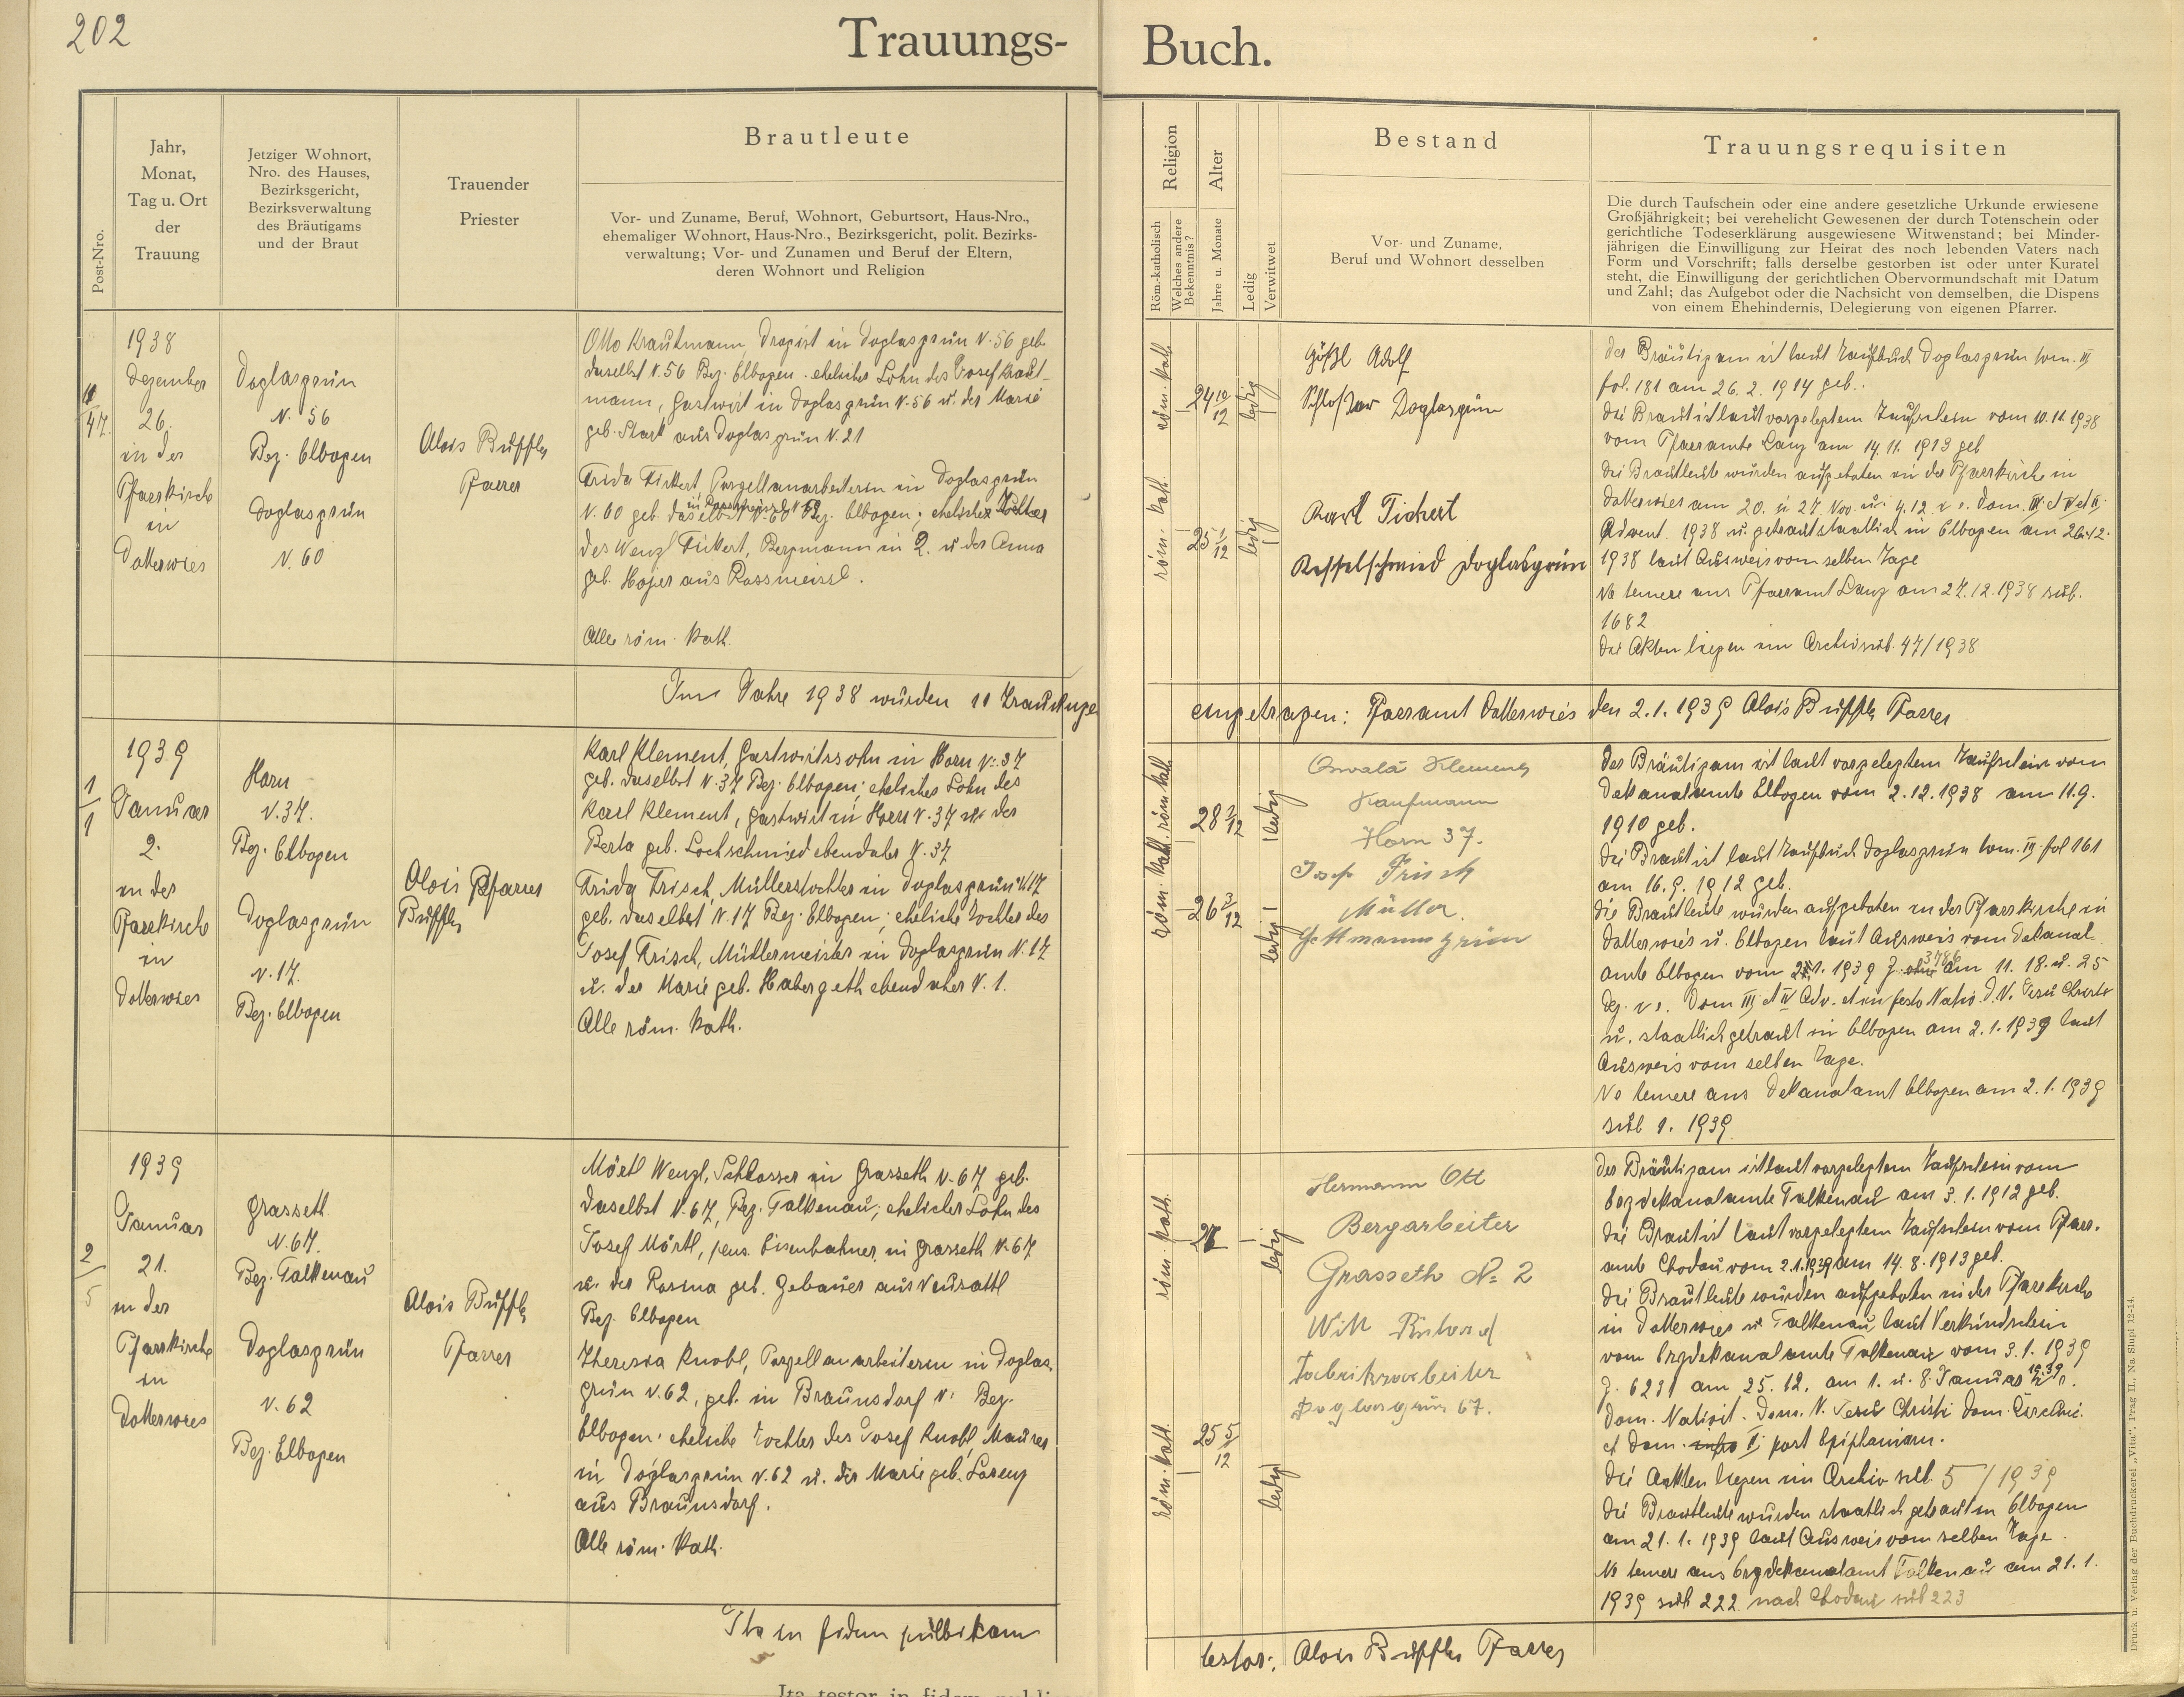 202
Trauungs-
Buch.
Post-Nro.
Jahr,
Monat,
Tag u. Ort
der
Trauung
Jetziger Wohnort,
Nro. des Hauses,
Bezirksgericht,
Bezirksverwaltung
des Bräutigams
und der Braut
Trauender
Priester
Brautleute
Vor- und Zuname, Beruf, Wohnort, Geburtsort, Haus-Nro.,
ehemaliger Wohnort, Haus-Nro., Bezirksgericht, polit. Bezirks-
verwaltung; Vor- und Zunamen und Beruf der Eltern,
deren Wohnort und Religion
Religion
Röm.-katholisch
Welches andere
Bekenntnis?
Alter
Jahre u. Monate
Ledig
Verwitwet
Bestand
Vor- und Zuname,
Beruf und Wohnort desselben
Trauungsrequisiten
Die durch Taufschein oder eine andere gesetzliche Urkunde erwiesene
Großjährigkeit; bei verehelicht Gewesenen der durch Totenschein oder
gerichtliche Todeserklärung ausgewiesene Witwenstand; bei Minder-
jährigen die Einwilligung zur Heirat des noch lebenden Vaters nach
Form und Vorschrift; falls derselbe gestorben ist oder unter Kuratel
steht, die Einwilligung der gerichtlichen Obervormundschaft mit Datum
und Zahl; das Aufgebot oder die Nachsicht von demselben, die Dispens
von einem Ehehindernis, Delegierung von eigenen Pfarrer.
47.
1938
Dezember
26.
in der
Pfarrkirche
in
Dotterwies
Doglasgrün
N. 56
Bez. Elbogen
Doglasgrün
N. 60
Alois Buffler
Pfarrer
Otto Krautmann, Drogist in Doglasgrün N. 56 geb.
daselbst N. 56 Bez. Elbogen. ehelicher Sohn des Josef Kraut-
mann, Gastwirt in Doglasgrün N. 56 u. der Marie
geb. Stark aus Doglasgrün N. 21
Frida Tickert, Porzellanarbeiterin in Doglasgrün
N. 60 geb. daselbst N. 60 Bez. Elbogen; eheliche Tochter
des Wenzl Tickert, Bergmann in D. u. der Anna
geb. Hojer aus Rossmeissl.
Alle röm. kath.
röm. kath.
24 10/12
ledig
röm. kath.
25 1/12
ledig
Gößl Adolf
Schlosser Doglasgrün
Karl Tichert
Kesselschmied Doglasgrün
Der Bräutigam ist laut Taufbuch Doglasgrün tom. III
fol. 181 am 26. 2. 1914 geb..
Die Braut ist laut vorgelegtem Taufschein vom 10. 11. 1938
vom Pfarramte Lanz am 14. 11. 1913 geb
Die Brautleute wurden aufgeboten in der Pfarrkirche in
Dotterwies am 20. u 27. Nov. u. 4. 12.
Advent. 1938 u. getraut staatlich in Elbogen am 26. 12.
1938 laut Ausweis vom selben Tage
Ne temere ans Pfarramt Lanz am 27. 12. 1938 sub.
1682.
Die Akten liegen im Archiv sub. 47/1938
Im Jahre 1938 wurden 11 Trauungen
eingetragen: Pfarramt Dotterwies den 2. 1. 1939 Alois Buffler Pfarrer
1
1
1939
Januar
2.
in der
Pfarrkirche
in
Dotterwies
Horn
N. 37.
Bez. Elbogen
Doglasgrün
N. 17.
Bez. Elbogen
Alois Pfarrer
Buffler
Karl Klement, Gastwirtssohn in Horn N. 37
geb. daselbst N. 37 Bez. Elbogen; ehelicher Sohn des
Karl Klement, Gastwirt in Horn N. 37 u. der
Berta geb. Lochschmied ebendaher N. 37
Frida Frisch, Müllerstochter in Doglasgrün N. 17
geb. daselbst N. 17 Bez. Elbogen; eheliche Tochter des
Josef Frisch, Müllermeister in Doglasgrün N. 17
u. der Marie geb. Habergeth ebendaher N. 1.
Alle röm. kath.
röm. kath.
28 3/12
ledig
röm. kath.
26 3/12
ledig
Oswald Klement
Kaufmann
Horn 37.
Josef Frisch
Müller.
Gottmannsgrün
Der Bräutigam ist laut vorgelegtem Taufschein vom
Dekanalamte Elbogen vom 2. 12. 1938 am 11. 9.
1910 geb.
Die Braut ist laut Taufbuch Doglasgrün tom. III. fol 161
am 16. 9. 1912 geb.
Die Brautleute wurden aufgeboten in der Pfarrkirche in
Dotterwies u. Elbogen laut Ausweis vom Dekanal-
amte Elbogen vom 2. 1. 1939 Z. 3786 am 11. 18. u. 25
Dez. Dom III et IV Adv. et in festo Nativ. D. N. Jesu Christi
u. staatlich getraut in Elbogen am 2. 1. 1939 laut
Ausweis vom selben Tage.
Ne temere ans Dekanalamt Elbogen am 2. 1. 1939
sub 1. 1939
2
5
1939
Januar
21.
in der
Pfarrkirche
in
Dotterwies
Grasseth
N. 67.
Bez. Falkenau
Doglasgrün
N. 62
Bez. Elbogen
Alois Buffler
Pfarrer
Mörtl Wenzl, Schlosser in Grasseth N. 67 geb.
daselbst N. 67, Bez. Falkenau; ehelicher Sohn des
Josef Mörtl, pens. Eisenbahner, in Grasseth N. 67
u. der Rosina geb. Gebauer aus Neusattl
Bez. Elbogen
Theresia Knobl, Porzellanarbeiterin in Doglas-
grün N. 62, geb. in Braunsdorf N: Bez.
Elbogen, eheliche Tochter des Josef Knobl, Maurer
in Doglasgrün N. 62 u. der Marie geb. Lorenz
aus Braunsdorf.
Alle röm. kath.
röm. kath.
27
ledig
röm. kath.
25 5/12
ledig
Hermann Ott
Bergarbeiter
Grasseth No 2
Will Richard
Fabriksarbeiter
Doglasgrün 67.
Der Bräutigam ist laut vorgelegtem Taufschein vom
Erzdekanalamte Falkenau am 3. 1. 1912 geb.
Die Braut ist laut vorgelegtem Taufschein vom Pfarr-
amte Chodau vom 2. 1. 1939 am 14. 8. 1913 geb.
Die Brautleute wurden aufgeboten in der Pfarrkirche
in Dotterwies u. Falkenau laut Verkündschein
vom Erzdekanalamte Falkenau vom 3. 1. 1939
Z. 6231 am 25. 12. am 1. u. 8. Januar 1939
Dom. Nativit. Dom. N. Jesu Christi Dom.
et Dom. post Epiphaniam.
Die Akten liegen im Archiv sub 5/1939
Die Brautleute wurden staatlich getraut in Elbogen
am 21. 1. 1939 laut Ausweis vom selben Tage.
Ne temere ans Erzdekanalamt Falkenau am 21. 1.
1939 sub 222 nach Chodau sub 223
Ita in fidem publikam
testor: Alois Buffler Pfarrer
Druck u. Verlag der Buchdruckerei „Vita“, Prag II., Na Slupi 12-14.
Ita testor in fidem publi